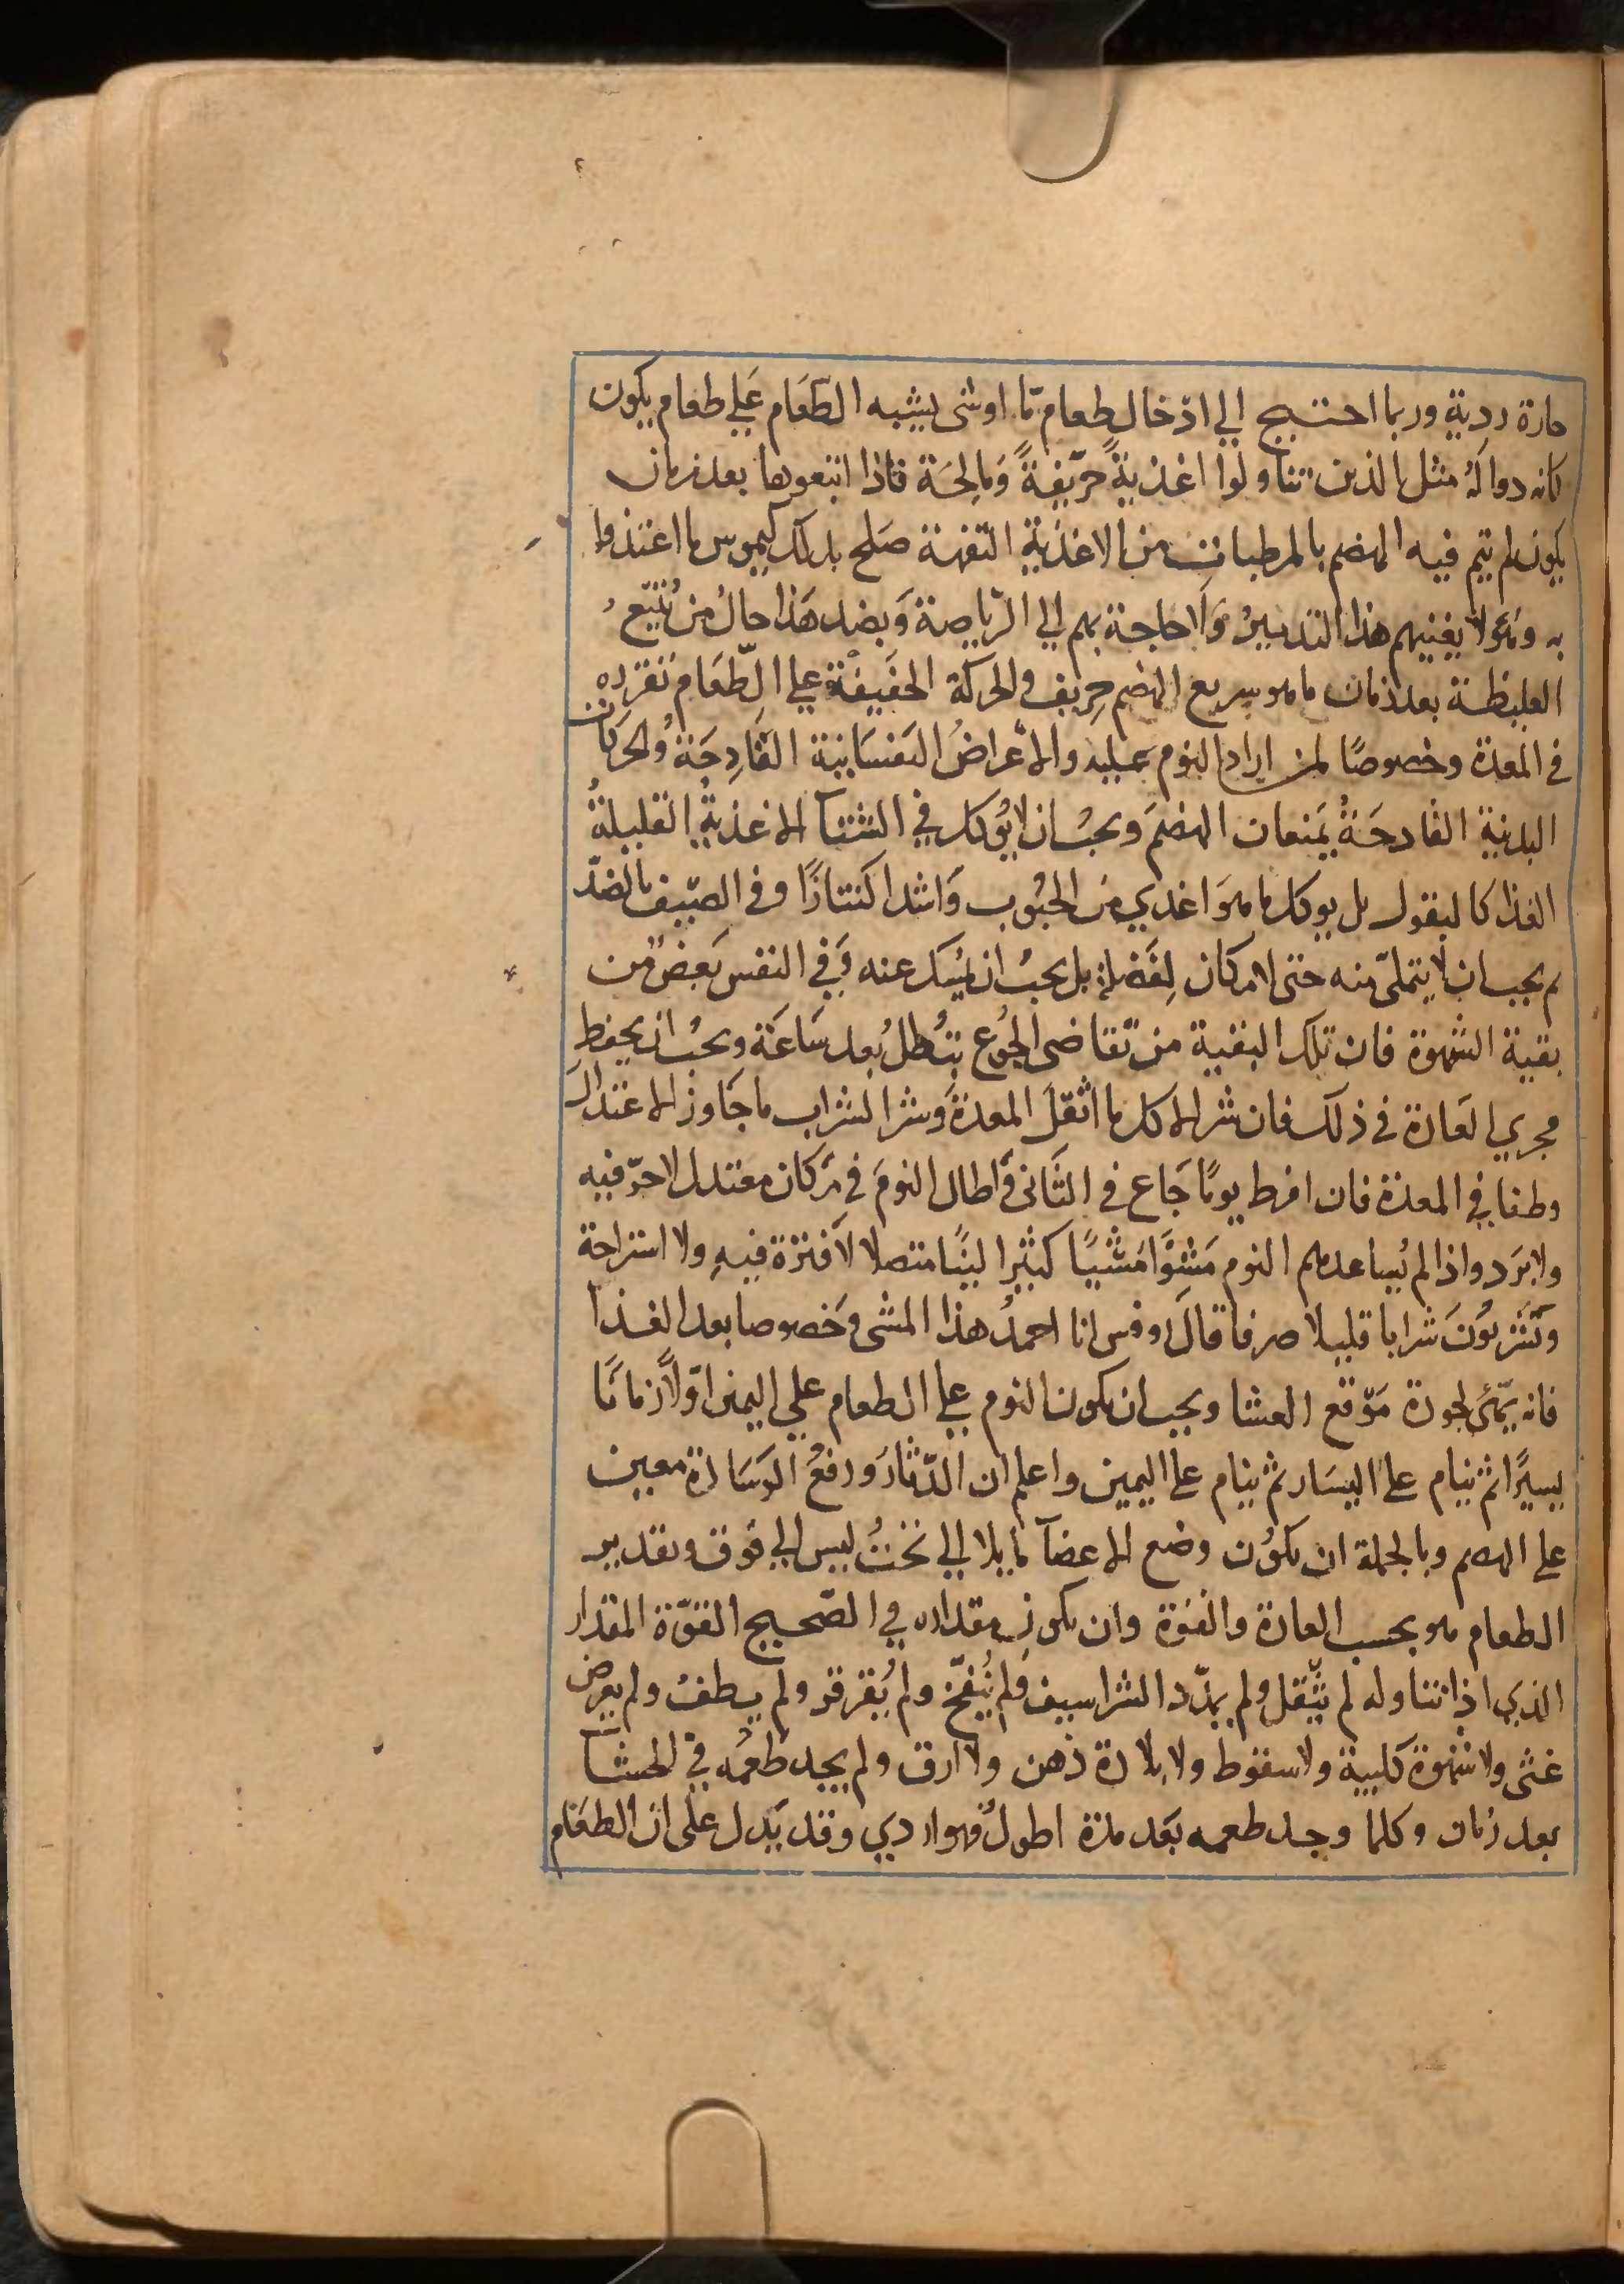 حارة ردية وربما احتيج الي ادخال طعام مّا او شى يشبه الطَعَام عَلي طعام يكون
كانه دوآلهُ مثل الذين تناولوا اغذيةً حرّيفةً وَمالِحَة فاذا اتبعوها بعد زمان
يكون لم يتم فيه الهضم بالمرطبات من الاغذية التفهة صَلح بذلك كيموس ما اغتذوا
به وهَولآ يغنيهم هذا التدبيرُ وَلاحاجة بهم الي الرّياضة وَبضد هَذا حالُ من يُتبّعُ
الغليظة بعد زمان ما هو سريع الهضم حِرّيف والحركة الخَفيفة علي الطَعَام تقرره
فى المعدة وخصوصًا لمن اراد النوم عليه والاعراضُ النَفسَانية القَادِحَة والحركات
البدنية القادحَةُ يَمنعان الهضمَ ويجبُ ان لايُوكل في الشتآ الاغذيةُ القليلةُ
الغذا كالبقول بل يوكل ما هوَ اغدي من الحُبُوب وَاشد اكتنازًا وفى الصّيف بالضدّ
ثم يجب ان لايتملّى منه حتى لامكان لِفَضلةٍ بل يجبُ ان يُمسك عنه وَفي النفس بَعضٌ من
بقية الشهوة فان تلك البقية من تقاضى الجُوع تبُطلُ بعد سَاعَة ويجبُ ان يحفظ
مجري العَادة فى ذلك فان شر الاكل ما اثقلَ المعدةَ وشر الشراب ما جَاوز الاعتدالَ
وطفا في المعدة فان افرط يومًا جَاع فى الثّانى وَاطال النومَ في مَكان معتدل لاحرّ فيه
ولابَرَد واذا لم يُساعدهم النوم مَشَوَّا مَشيًا كثيرا لينًا متصلا لاَفترة فيهِ ولا استراحة
وَيَشربُونَ شرابا قليلا صرفا قالَ روفس انا احمدُ هذا المشى وَخصوصا بعد الغذا
فانه يهّيى لجودة مَوّقع العشا ويجب ان يكون النوم علي الطعام علي اليمين اوّلاً زمانًا
يسيرًا ثم ينام على اليسَار ثم ينام على اليمين واعلم ان الدّثارَ ورفعُ الوَسَادة معين
على الهضم وبالجملة ان يكوُن وضع الاعضآ مايلا الي تحتُ ليس الي فوق وتقدير
الطعام هو بحسب العادة والقوة وان يكون مقداره في الصّحيح القوّة المقدار
الذي اذا تناوله لم يثّقل ولم يمدّد الشراسيف وَلم يُنفّخ ولم يُقرقر ولم يطفُ ولم يعرض
غثى ولا شهوة كلبية ولا سقوط ولا بلادة ذهن ولا ارق ولم يجد طعمُه في الجشآ
بعد زمان وكلما وجد طعمه بَعد مدة اطول فهو اردي وقد يَدل على ان الطعَام